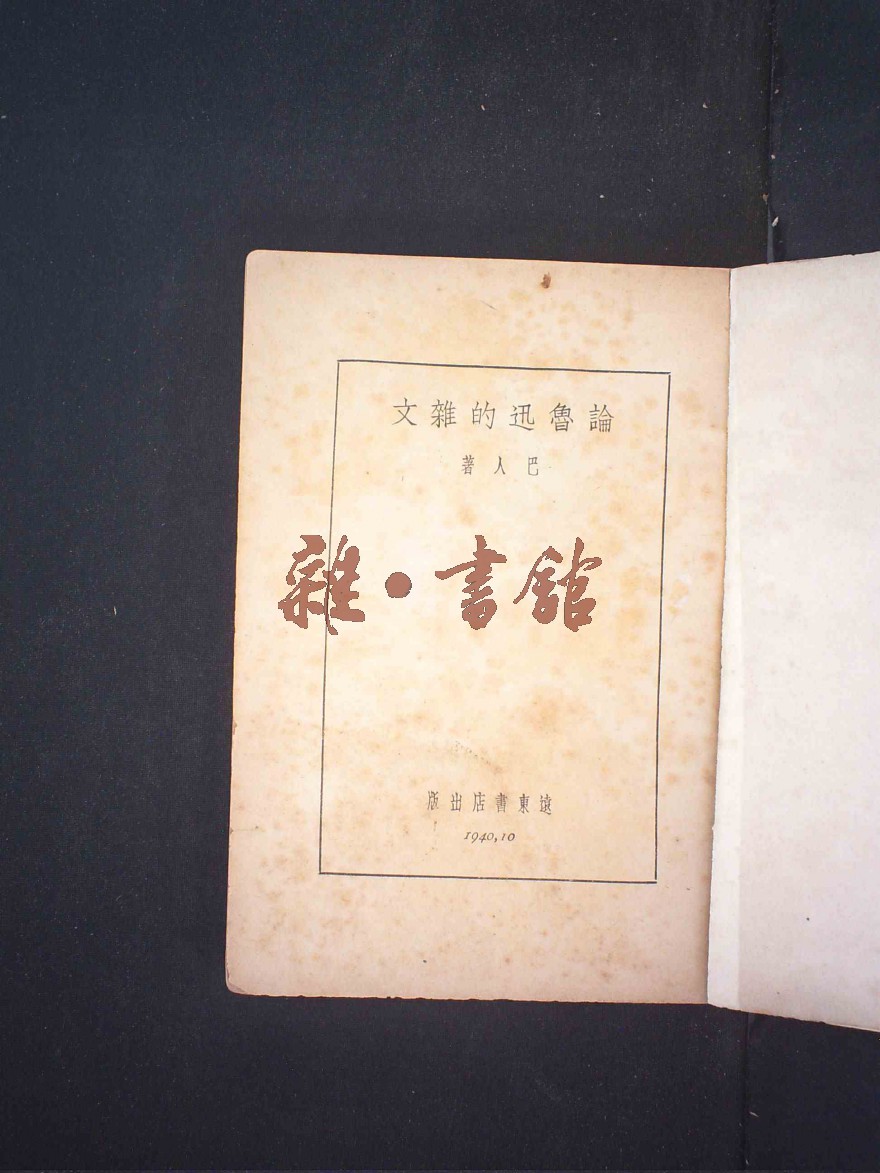 論魯迅的雜文
巴人著
雜·書館
遠東書店出版
1940,10